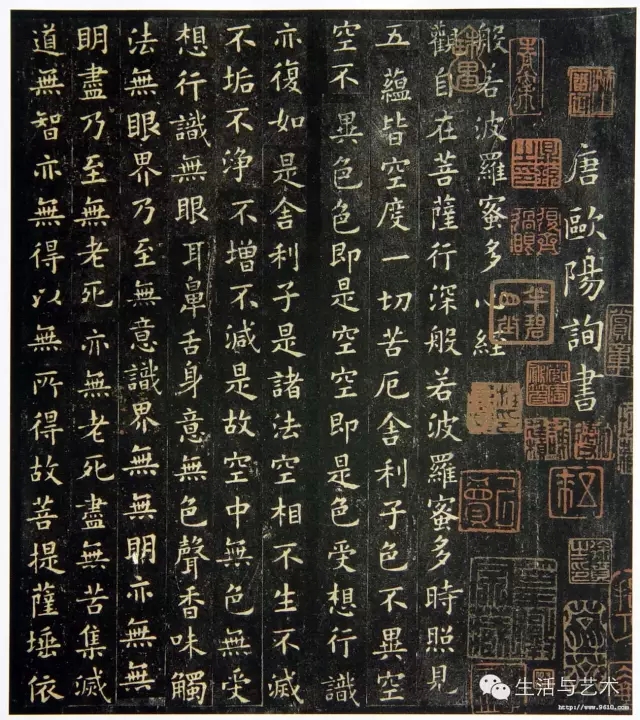 唐歐陽詢書
般若波羅蜜多心經
觀自在菩薩行深般若波羅蜜多時照見
五蘊皆空度一切苦厄舍利子色不異空
空不異色色即是空空即是色受想行識
亦復如是舍利子是諸法空相不生不滅
不垢不淨不增不減是故空中無色無受
想行識無眼耳鼻舌身意無色聲香味觸
法無眼界乃至無意識界無無明亦無無
明盡乃至無老死亦無老死盡無苦集滅
道無智亦無得以無所得故菩提薩埵依
生活与艺术
http://www.9610.com